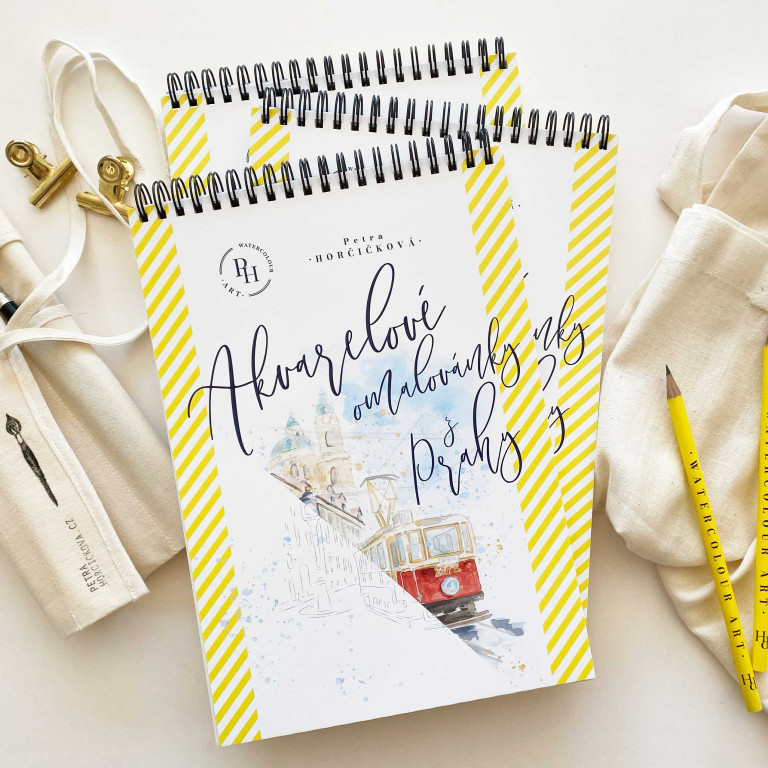 Petra
·HORČIČKOVÁ·
WATERCOLOUR
PH
·ART·
Akvarelové
omalovánky
Prahy
nky
y
PETRA
HORCICKOVA.CZ
·WATERCOLOUR ART·
PH
WATERCOLOUR ART·
PH